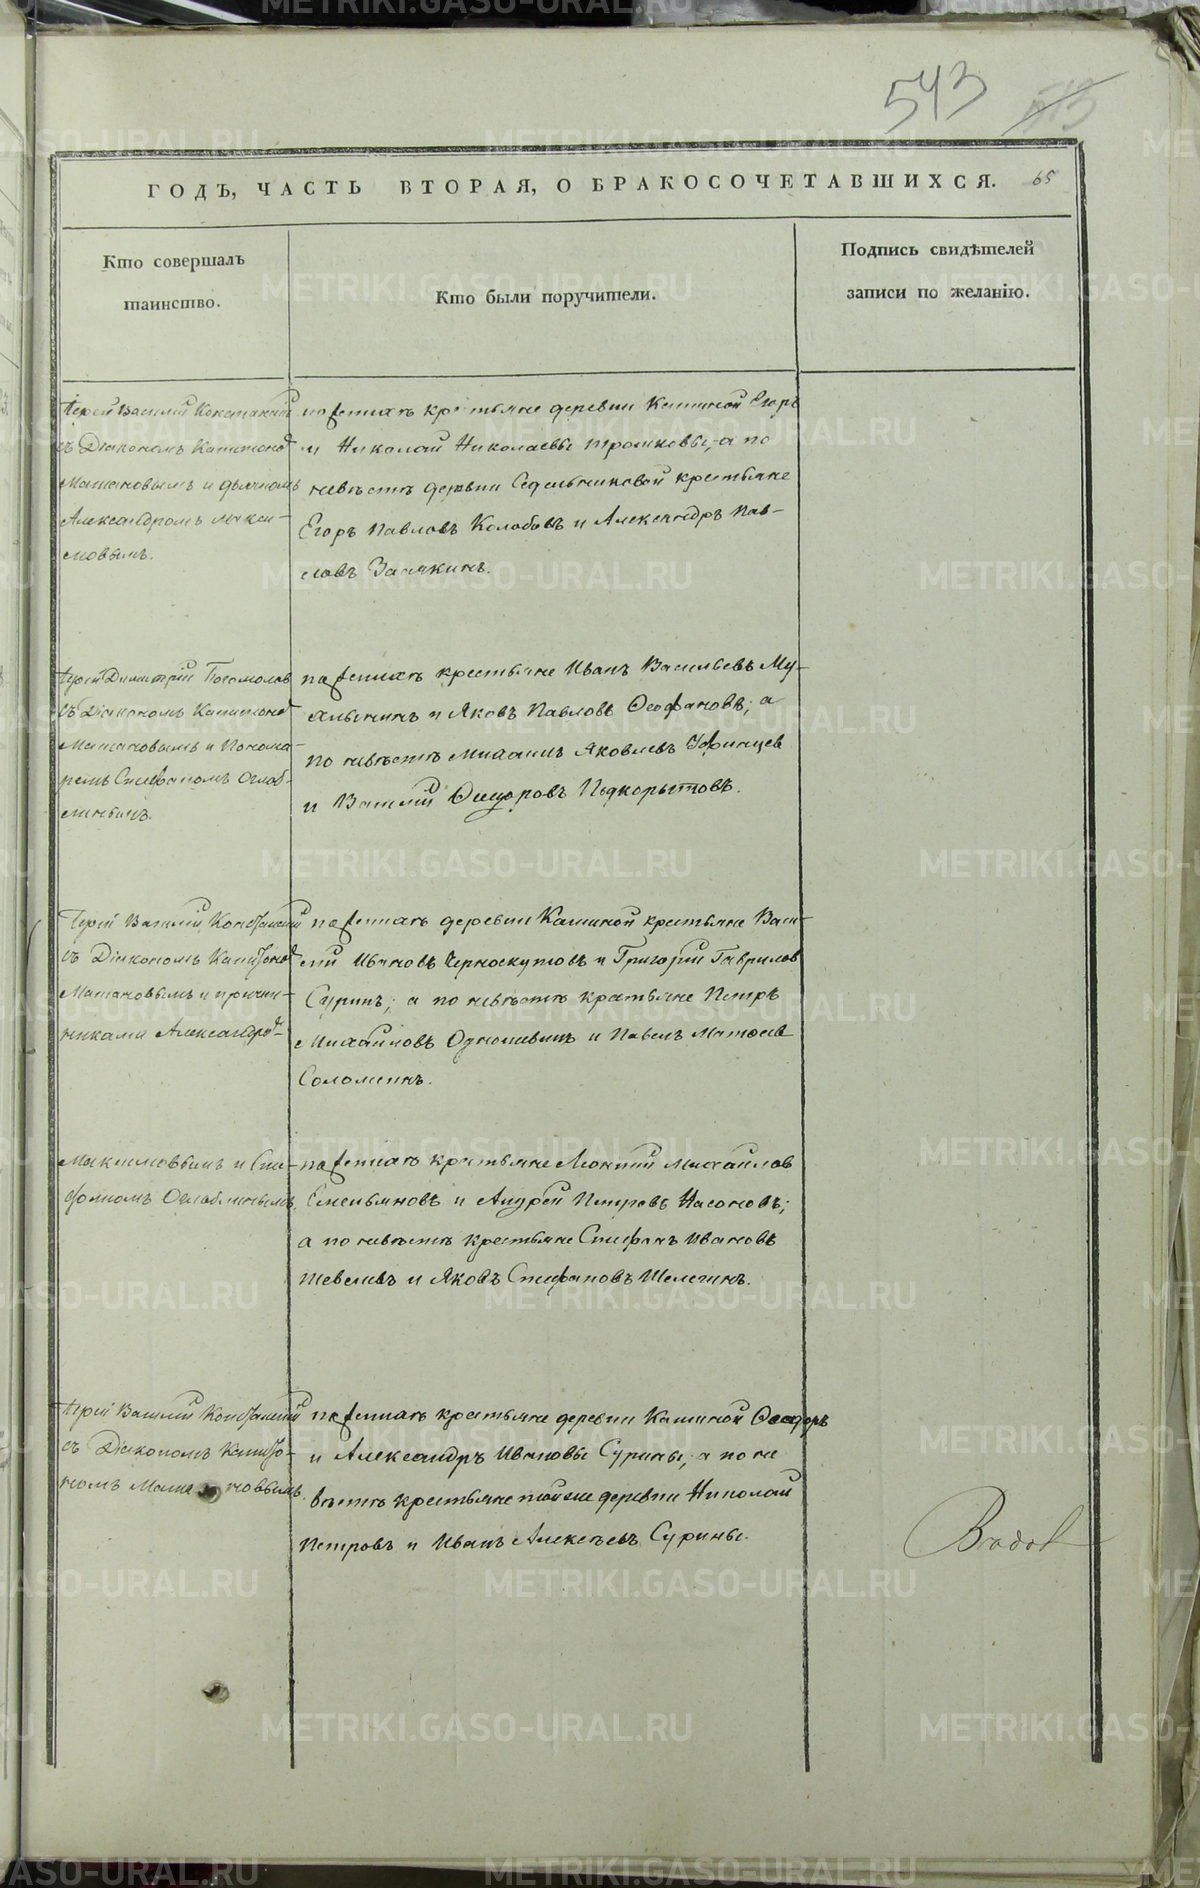 543
513
ГОДЪ, ЧАСТЬ ВТОРАЯ, О БРАКОСОЧЕТАВШИХСЯ. 65
Кто совершалъ
таинство.
Кто были поручители.
Подпись свидѣтелей
записи по желанію.
Іерей Василій
съ Діакономъ Капитоно
и дьячкомъ
Александромъ Макси-
мовымъ.
по женихѣ крестьяне деревни Калиной Егоръ
и Николай Николаевы а по
невѣстѣ деревни Седельниковой крестьяне
Егоръ Павловъ Колобовъ и Александръ Пав-
ловъ
Іерей Димитрій Богомолов
съ Діакономъ Капитоно
и Понома-
ремъ Стефаномъ Оглоб-
линымъ.
по женихѣ крестьяне Иванъ Васильевъ Му-
и Яковъ Павловъ Ѳеофановъ; а
по невѣстѣ Михаилъ Яковлевъ Уфинцев
и Василій Ѳедоровъ Подкорытовъ.
Іерей Василій
съ Діакономъ Капитоно
и причет-
никами Александро-
по женихѣ деревни Калиной крестьяне Васи-
лій Ивановъ Черноскутовъ и Григорій Гавриловъ
Суринъ; а по невѣстѣ крестьяне Петръ
Михайловъ и Павелъ
Соломеинъ.
Максимовымъ и Сте-
фаномъ Оглоблинымъ.
по женихѣ крестьяне Леонтій Михайловъ
Емельяновъ и Андрей Петровъ Насоновъ;
а по невѣстѣ крестьяне Стефанъ Ивановъ
Шевелевъ и Яковъ Стефановъ Шелегинъ.
Іерей Василій
съ Діакономъ Капито-
номъ
по женихѣ крестьяне деревни Калиной Ѳеодоръ
и Александръ Ивановы Сурины; а по не
вѣстѣ крестьяне тойже деревни Николай
Петровъ и Иванъ Алексѣевъ Сурины.